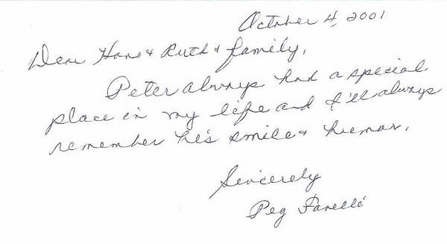 October 4, 2001
Dear Hans & Ruth & family,
Peter always had a special
place in my life and I'll always
remember his smile & humor.
Sincerely
Peg